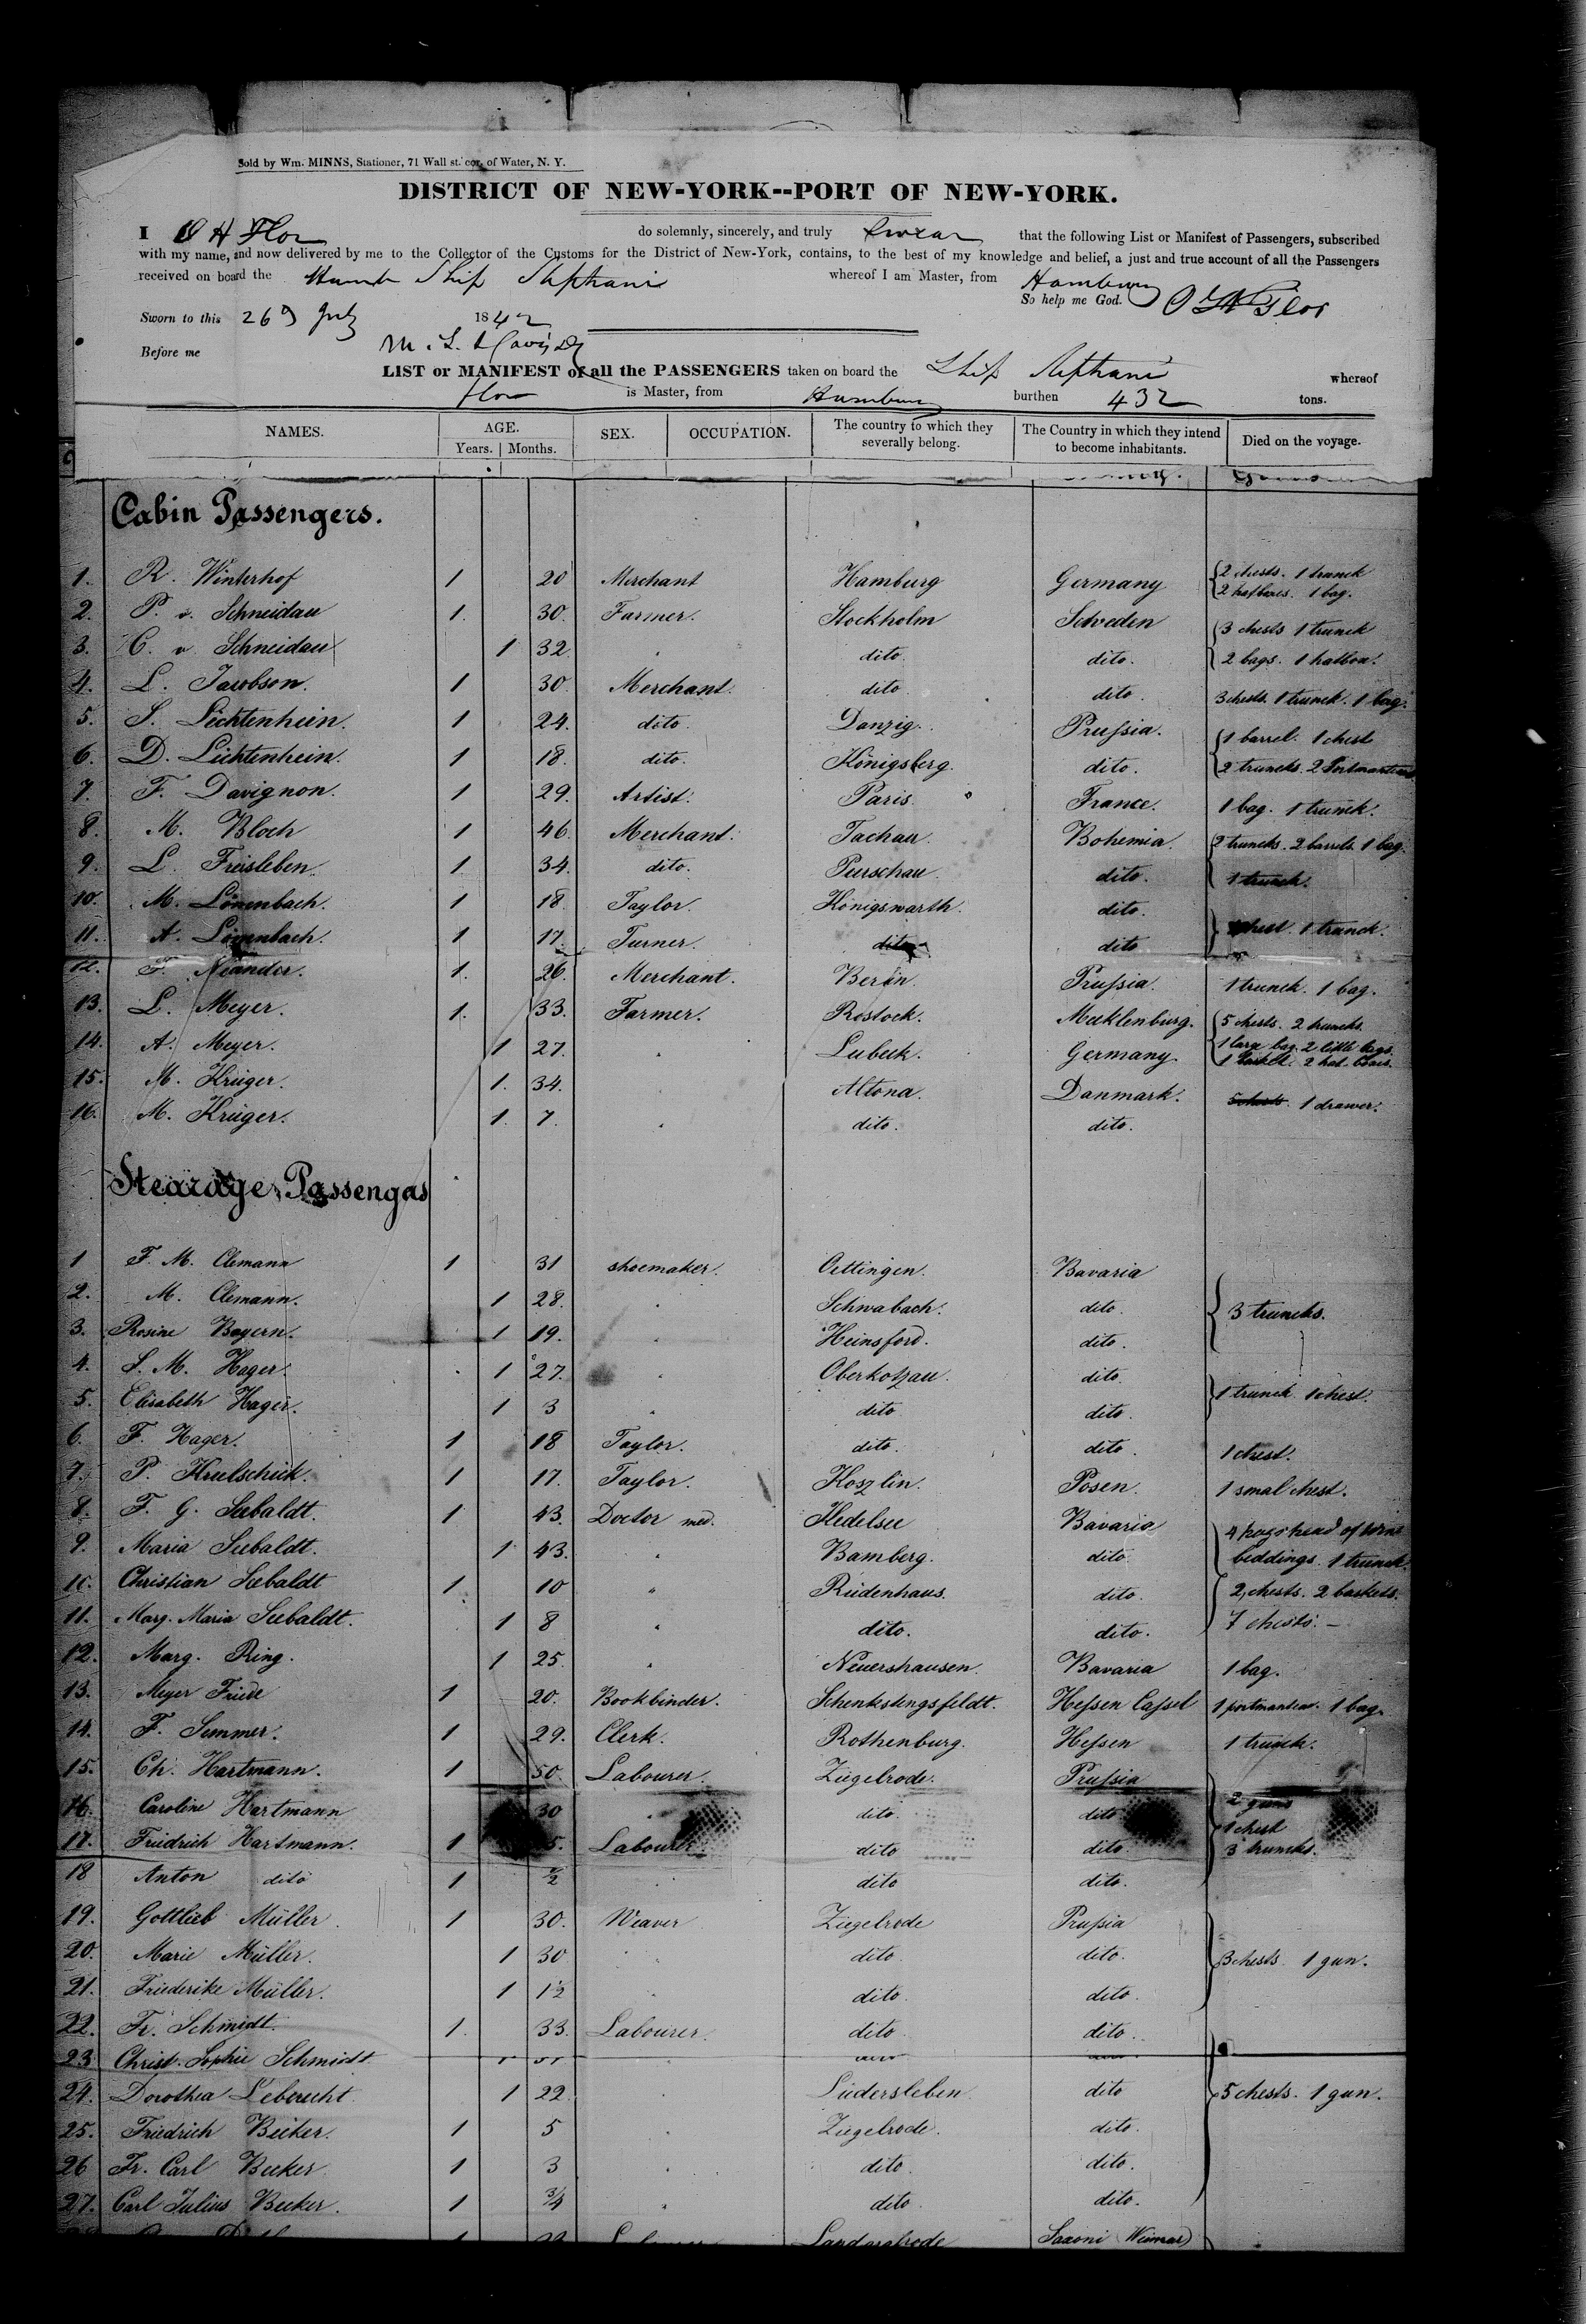 Sold by Wm. MINNS, Stationer, 71 Wall st. cor. of Water, N. Y.
DISTRICT OF NEW-YORK--PORT OF NEW-YORK.
I O H Flor do solemnly, sincerely, and truly swear that the following List or Manifest of Passengers, subscribed
with my name, and now delivered by me to the Collector of the Customs for the District of New-York, contains, to the best of my knowledge and belief, a just and true account of all the Passengers
received on board the Hamb Ship Stephani whereof I am Master, from Hamburg
So help me God. Flor
Sworn to this 26 July 1842
Before me
LIST or MANIFEST of all the PASSENGERS taken on board the Ship Stephani whereof
Flor is Master, from Hamburg burthen 432 tons.
NAMES. AGE. SEX. OCCUPATION. The country to which they severally belong. The Country in which they intend to become inhabitants. Died on the voyage.
Years. Months.
Cabin Passengers.
1. R. Winterhof 1 20 Merchant Hamburg Germany 2 chests. 1 trunck 2 hatboxes. 1 bag.
2. P. v. Schneidau 1. 30. Farmer. Stockholm Schveden 3 chests 1 trunck
3. C. v Schneidau 1 32 dito. dito. 2 bags. 1 hatbox.
4. L. Jacobson. 1 30. Merchant. dito dito. 3 chests. 1 trunck. 1 bag.
5. S. Lichtenhein. 1 24. dito Danzig. Prußia. 1 barrel. 1 chest
6. D. Lichtenhein. 1 18. dito. Königsberg. dito. 2 truncks. 2
7. F. Davignon. 1 29. Artist. Paris. France. 1 bag. 1 trunck.
8. M. Bloch 1 46. Merchant. Tachau. Bohemia. 2 truncks. 2 barrels. 1 bag.
9. L. Freisleben. 1 34. dito. Purschau. dito. 1 trunck.
10. M. Lönenbach. 1 18. Taylor. Königswarth. dito.
11. A. Lönenbach. 1 17. Turner. dito dito chest. 1 trunck.
12. F. Neander. 1. 26. Merchant. Berlin. Prußia. 1 trunck. 1 bag.
13. L. Meyer. 1. 33. Farmer. Rostock. Mecklenburg. 5 chests. 2 truncks.
14. A. Meyer. 1 27. Lubeck. Germany. 1 large bag. 2 little bags. 1 2 hat boxes.
15. M. Krüger. 1. 34. Altona. Danmark. 5 chests. 1 drawer.
16. M. Krüger. 1. 7. dito. dito.
Stearage Passengers
1 F. M. Clemann 1 31 shoemaker. Oettingen. Bavaria
2. M. Clemann. 1 28. Schwabach. dito. 3 truncks.
3. Rosine Bayern. 1 19. Heinsford. dito.
4. S. M. Hager. 1 27. Oberkotzau. dito.
5. Elisabeth Hager. 1 3 dito dito. 1 trunck 1 chest.
6. F. Hager. 1 18 Taylor. dito. dito. 1 chest.
7. P. Kruelschick. 1 17. Taylor. Koszlin. Posen. 1 smal chest.
8. F. G. Seebaldt. 1 43. Doctor med. Hedelsee Bavaria 4
9. Maria Seebaldt. 1 43. Bamberg. dito. beddings. 1 trunck.
10. Christian Seebaldt 1 10 Rüdenhaus. dito. 2 chests. 2 baskets.
11. Marg. Maria Seebaldt. 1 8 dito. dito. 7 chests. –
12. Marg. Ring. 1 25. Neuershausen. Bavaria 1 bag.
13. Meyer Friede 1 20. Bookbinder. Schenkslengsfeldt. Heßen Caßel 1 portmanteau. 1 bag.
14. F. Semmer. 1 29. Clerk. Rothenburg. Heßen 1 trunck.
15. Ch. Hartmann. 1 50. Labourer. Ziegelrode. Prußia
16. Caroline Hartmann 30 dito. dito 2 guns
17. Friedrich Hartmann. 1 5. Labourer. dito dito. 1 chest 3 truncks.
18 Anton dito 1 ½ dito dito.
19. Gottlieb Müller. 1 30. Weaver Ziegelrode Prußia
20. Marie Müller. 1 30 dito dito. 3 chests. 1 gun.
21. Friederike Müller. 1 1½ dito. dito.
22. Fr. Schmidt. 1. 33. Labourer. dito. dito.
23. Christ. Sophie Schmidt
24. Dorothea Leberecht 1 22. Lüdersleben. dito 5 chests. 1 gun.
25. Friedrich Becker. 1 5 Ziegelrode. dito.
26 Fr. Carl Becker. 1 3 dito. dito.
27. Carl Julius Becker. 1 ¾ dito dito.
Saxoni Weimar